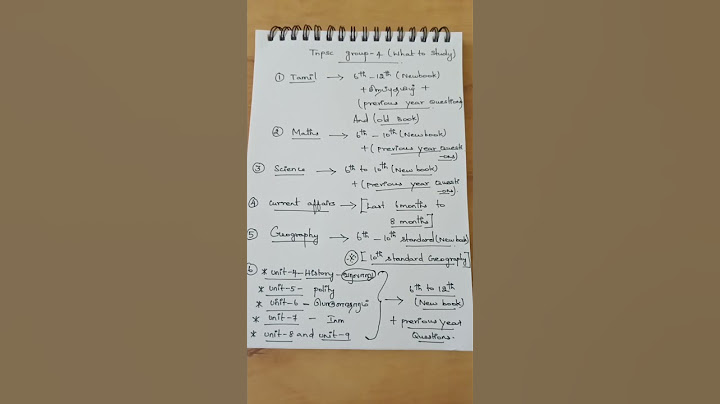 Tnpsc group-4 (What to study)
① Tamil → 6th - 12th (New book)
+ +
(previous year Questions)
And (old Book)
② Maths → 6th - 10th (New book)
+ (previous year Questi
-ons)
③ Science → 6th to 10th (New book)
+ (previous year Questi
-ons).
④ current affairs → [Last 6 months to
8 months]
⑤ Geography → 6th - 10th standard (New book)
* [10th standard Geography]
⑥ * unit-4-History - வரலாறு
* unit-5 - polity
* unit-6 - பொருளாதாரம்
* unit-7 - Inm
* unit-8 and unit-9
→ 6th to 12th
(New book)
+ previous year
Questions.